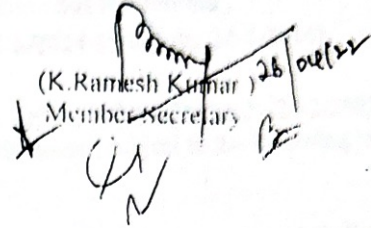 (K.Ramesh Kumar) 28/04/22
Member Secretary